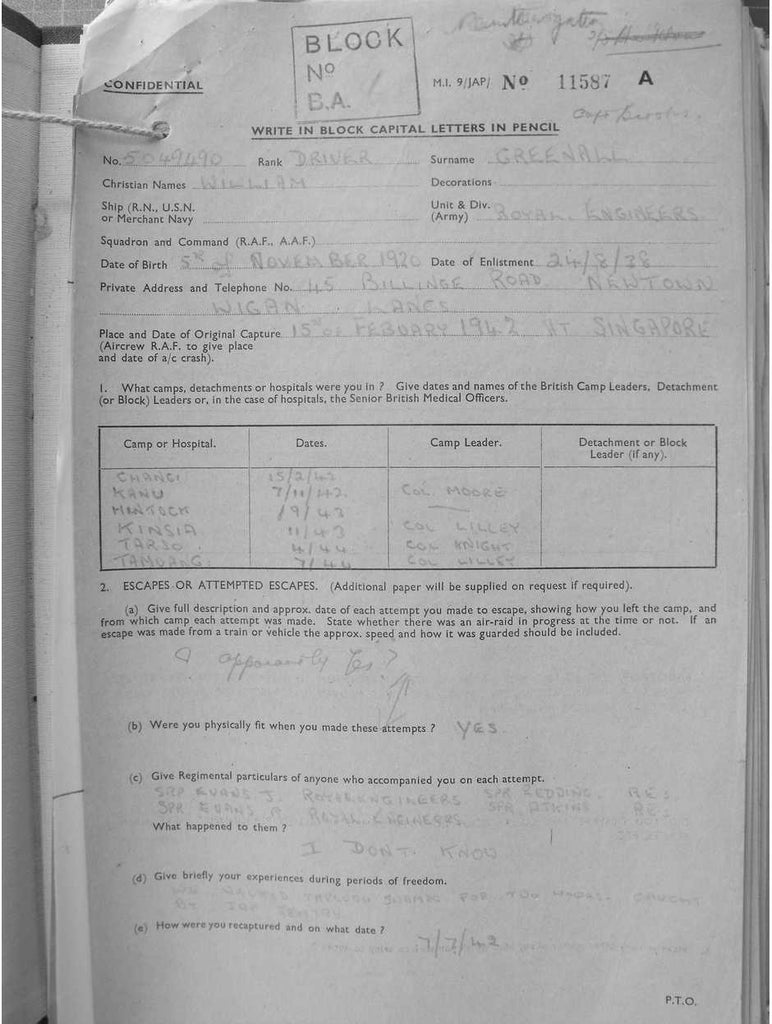 BLOCK
No
B.A.
CONFIDENTIAL
M.I. 9/JAP/ No 11587 A
WRITE IN BLOCK CAPITAL LETTERS IN PENCIL
No. 5049490 Rank DRIVER Surname GREENALL
Christian Names WILLIAM Decorations
Ship (R.N., U.S.N.
or Merchant Navy
Unit & Div.
(Army) ROYAL ENGINEERS
Squadron and Command (R.A.F., A.A.F.)
Date of Birth 5th of NOVEMBER 1920 Date of Enlistment 24/8/38
Private Address and Telephone No. 45 BILLINGE ROAD NEWTOWN
WIGAN LANCS
Place and Date of Original Capture 15th OF FEBUARY 1942 AT SINGAPORE
(Aircrew R.A.F. to give place
and date of a/c crash).
1. What camps, detachments or hospitals were you in ? Give dates and names of the British Camp Leaders, Detachment
(or Block) Leaders or, in the case of hospitals, the Senior British Medical Officers.
Camp or Hospital. Dates. Camp Leader. Detachment or Block
Leader (if any).
CHANGI 15/2/42
KANU 7/11/42. COL MOORE
HINTOCK /9/43
KINSIA 11/43 COL LILLEY
TARSO. 4/44 COL KNIGHT
TAMUANG. 7/44 COL LILLEY
2. ESCAPES OR ATTEMPTED ESCAPES. (Additional paper will be supplied on request if required).
(a) Give full description and approx. date of each attempt you made to escape, showing how you left the camp, and
from which camp each attempt was made. State whether there was an air-raid in progress at the time or not. If an
escape was made from a train or vehicle the approx. speed and how it was guarded should be included.
apparently Yes ?
(b) Were you physically fit when you made these attempts ? YES
(c) Give Regimental particulars of anyone who accompanied you on each attempt.
SRP EVANS J. ROYAL ENGINEERS SPR REDDING. RE.
SPR EVANS R. ROYAL ENGINEERS. SPR ATKINS RE.
What happened to them ?
I DONT KNOW
(d) Give briefly your experiences during periods of freedom.
WE WALKED THROUGH SWAMP FOR TWO CAUGHT
BY JAP SENTRY
(e) How were you recaptured and on what date ?
7/7/42
P.T.O.